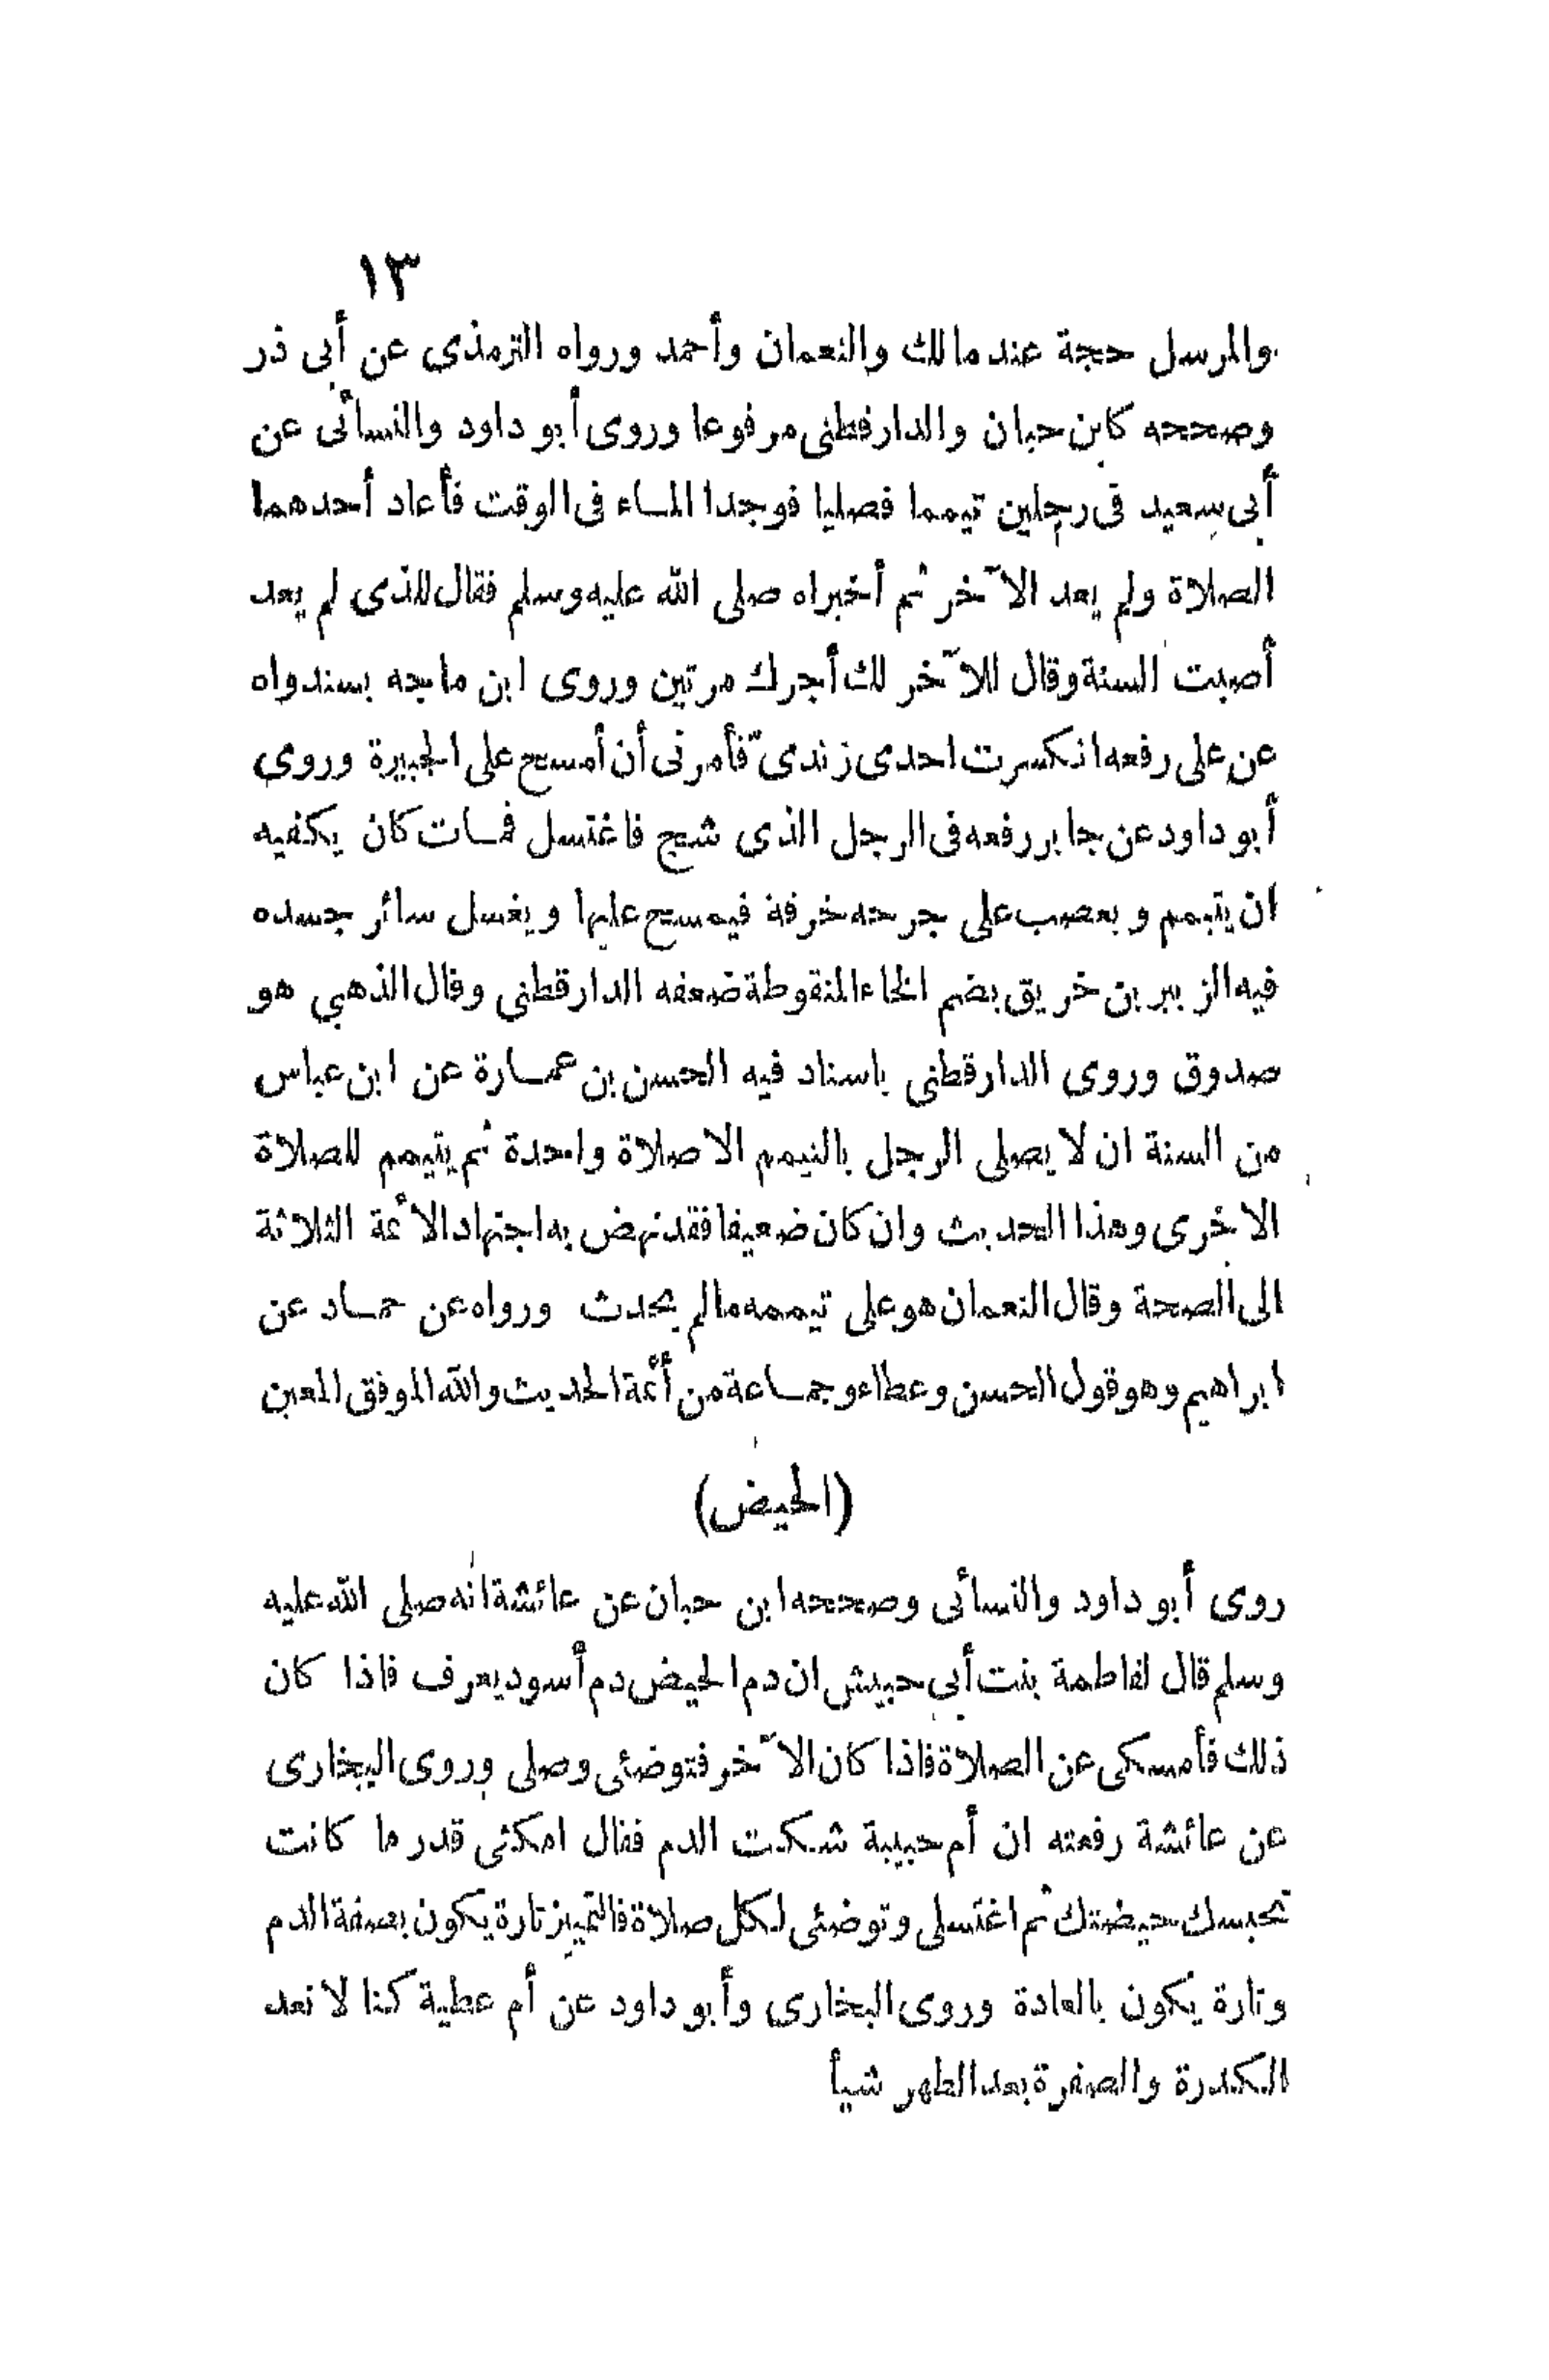 ١٣
والمرسل حجة عند مالك والنعمان وأحمد ورواه الترمذى عن أبى ذر
وصححه كابن حبان والدارقطنى مرفوعا وروى أبو داود والنسائى عن
أبى سعيد فى رجلين تيمما فصليا فوجدا الماء فى الوقت فأعاد أحدهما
الصلاة ولم يعد الآخر ثم أخبراه صلى الله عليه وسلم فقال للذى لم يعد
أصبت السنة وقال للآخر لك أجرك مرتين وروى ابن ماجه بسند واه
عن على رفعه انكسرت احدى زندىّ فأمرنى أن أمسح على الجبيرة وروى
أبو داود عن جابر رفعه فى الرجل الذى شج فاغتسل فمات كان يكفيه
ان يتيمم و يعصب على جرحه خرقة فيمسح عليها و يغسل سائر جسده
فيه الزبير بن خريق بضم الخاء المنقوطة ضعفه الدارقطنى وقال الذهبي هو
صدوق وروى الدارقطنى باسناد فيه الحسن بن عمارة عن ابن عباس
من السنة ان لا يصلى الرجل بالتيمم الا صلاة واحدة ثم يتيمم للصلاة
الاخرى وهذا الحديث وان كان ضعيفا فقد نهض به اجتهاد الأئمة الثلاثة
الى الصحة وقال النعمان هو على تيممه مالم يحدث ورواه عن حماد عن
ابراهيم وهو قول الحسن وعطاء وجماعة من أئمة الحديث والله الموفق المعين
(الحيض)
روى أبو داود والنسائى وصححه ابن حبان عن عائشة انه صلى الله عليه
وسلم قال لفاطمة بنت أبى حبيش ان دم الحيض دم أسود يعرف فاذا كان
ذلك فأمسكى عن الصلاة فاذا كان الآخر فتوضئى وصلى وروى البخارى
عن عائشة رفعته ان أم حبيبة شكت الدم فقال امكثى قدر ما كانت
تحبسك حيضتك ثم اغتسلى وتوضئى لكل صلاة فالتمييز تارة يكون بصفة الدم
وتارة يكون بالعادة وروى البخارى وأبو داود عن أم عطية كنا لا نعد
الكدرة والصفرة بعد الطهر شيأ